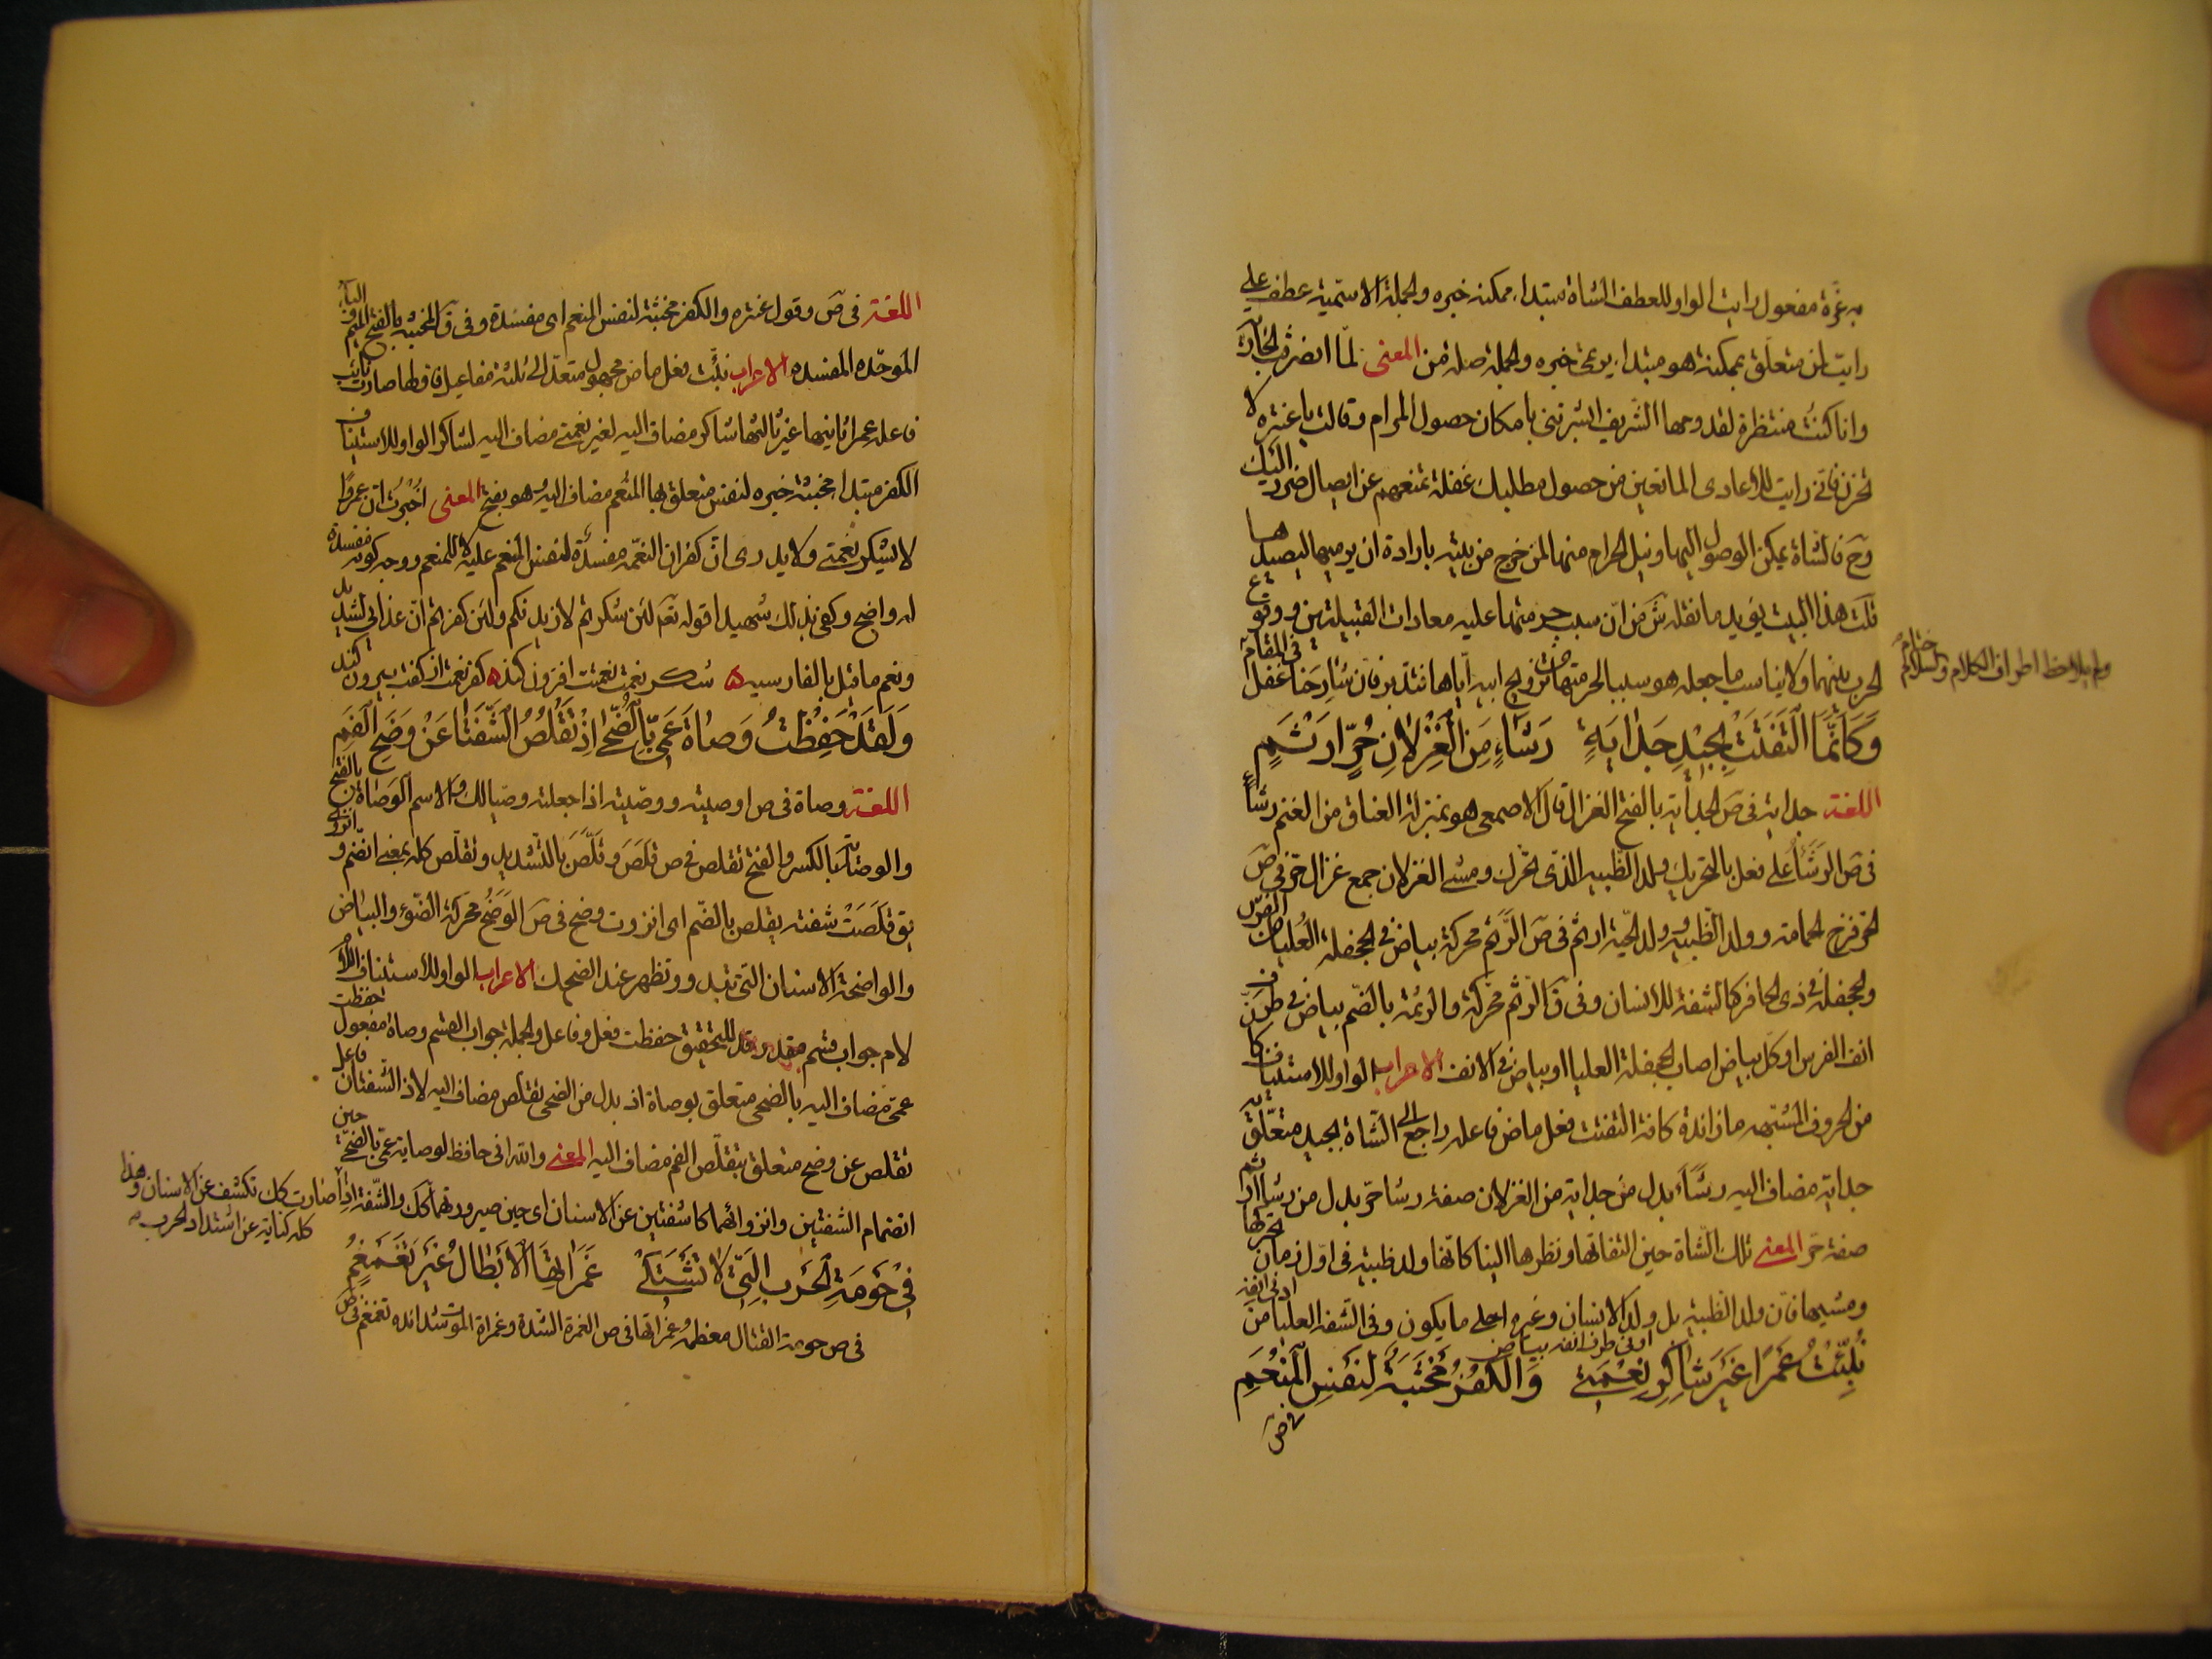 به غرّة مفعول رايت الواو للعطف الشاة مبتداء ممكنه خبره والجملة الاسمية عطف على
رايت لمن متعلق بممكنة هو مبتداء يرتمى خبره والجملة صلة من المعنى لمّا انصرفت الجارية
وانا كنت منتظرة لقدومها الشريف ابشرتنى بامكان حصول المرام وقالت يا عنتره لا
تحزن فانى رايت للاعادى المانعين من حصول مطلبك غفلة تمنعهم عن ايصال ضرر اليك
وح فالشاة يمكن الوصول اليها ونيل الحرام منها لمن خرج من بيته بارادة ان يرميها ليصيدها
قلت هذا البيت يؤيد ما نقله ش من انّ سبب حرمتها عليه معادات القبيلتين ووقوع
الحرب بينهما ولا يناسب ما جعله هو سببا لحرمتها من تزويج ابيه اياها فتدبر فان شارحنا غفل فى المقام
ولم يلاحظ اطراف الكلام والسلام ختام
وَكَاَنَّمَا الْتَفَتَتْ بِجِيْدِ جَدٰايَةٍ رَشَاءٍ مِنَ الْغِزْلٰانِ حُرٍّ اَرْثَمٍ
اللغة جداية فى ص الجداية بالفتح الغزال قال الاصمعى هو بمنزلة العناق من الغنم رشأ
فى ص الرشأ على فعل بالتحريك ولد الظبيه الذى تحرك ومشى الغزلان جمع غزال حرّ فى ص
الحرّ فرخ الحمامة وولد الظبية وولد الحية ارثم فى ص الرثم محركة بياض فى جحفلة الفرس العليا ص
والجحفلة فى ذى الحافر كالشفة للانسان وفى ق الرثم محركة والرثمة بالضم بياض فى طرف
انف الفرس او كل بياض اصاب الجحفلة العليا او بياض فى الانف الاعراب الواو للاستيناف كان
من الحروف المشبهه ما زائدة كافة التفتت فعل ماض فاعله راجع الى الشاة بجيد متعلق به
جداية مضاف اليه رشاء بدل من جداية من الغزلان صفة رشا حر بدل من رشا ارثم
صفة حر المعنى تلك الشاة حين التفاتها ونظرها الينا كانها ولد ظبية فى اول زمان تحركها
ومشيها فان ولد الظبية بل ولد الانسان وغيره احلى ما يكون وفى الشفه العليا من
ادنى انفه او فى طرف انفه بياض
نُبِّئْتُ عَمْرًا غَيْرَ شٰاكِرِ نِعْمَتِى وَالْكُفْرُ مَخْبَثَةٌ لِنَفْسِ الْمُنْعِمِ
فى ص
اللغة فى ص وقول عنتره والكفر مخبثة لنفس المنعم اى مفسدة وفى ق المخبثه بالفتح الميم والباء
الموحّده المفسده الاعراب نبّئت فعل ماض مجهول متعدّ الى ثلثة مفاعيل فاولها صارت نائب
فاعله عمرا ثانيها غير ثالثها شاكر مضاف اليه لغير نعمتى مضاف اليه لشاكر الواو للاستيناف
الكفر مبتداء مخبثة خبره لنفس متعلق بها المنعم مضاف اليه وهو بفتح المعنى اخبرت ان عمروًا
لا يشكر نعمتى ولا يدرى ان كفران النعمه مفسدة لنفس المنعم عليه لا للمنعم ووجه كونه مفسدة
له واضح وكفى بذلك شهيدا قوله تع لئن شكرتم لازيدنكم ولئن كفرتم ان عذابى لشديد
ونعم ما قيل بالفارسيه شكر نعمت نعمتت افزون كند كفر نعمت از كفت بيرون كند
وَلَقَدْ حَفِظْتُ وَصٰاةَ عَمِّى بِالضُّحٰى اِذْ تَقْلُصُ الشَّفَتٰا عَنْ وَضَحِ الْفَمِ
اللغة وصاة فى ص اوصيته ووصّيته اذا جعلته وصيّا لك والاسم الوصاة بالفتح
والوصاية بالكسر والفتح تقلص فى ص قلص وقلّص بالتشديد وتقلص كله بمعنى انضم وانزوى
يق قلصت شفته يقلص بالضم اى انزوت وضح فى ص الوضح محركة الضوء والبياض
والواضحة الاسنان التى تبدو وتظهر عند الضحك الاعراب الواو للاستيناف اللام
لام جواب قسم مقدر قد للتحقيق حفظت فعل وفاعل والجملة جواب القسم وصاة مفعول حفظت
عمى مضاف اليه بالضحى متعلق بوصاة اذ بدل من الضحى تقلص مضاف اليه لاذ الشفتان فاعل
تقلص عن وضح متعلق بتقلص الفم مضاف اليه المعنى والله انى حافظ لوصاية عمى بالضحى حين
انضمام الشفتين وانزوائهما كاشفتين عن الاسنان اى حين صيرورتهما كك والشفة اذا صارت كك تكشف عن الاسنان وهذا
كله كناية عن اشتداد الحرب
فِى حَوْمَةِ الْحَرْبِ الَّتِى لٰا تَشْتَكِى غَمَرٰاتِهَا الْاَبْطٰالُ غَيْرَ تَغَمْغُمِ
فى ص حومة القتال معظمه غمراتها فى ص الغمرة الشدة وغمراة الموت شدائده تغمغم فى ص